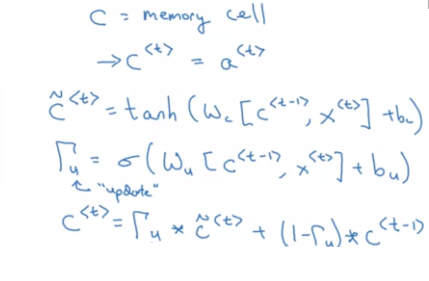 c = memory cell
→ c^{<t>} = a^{<t>}
c̃^{<t>} = tanh(W_c[c^{<t-1>}, x^{<t>}] + b_c)
Γ_u = σ(W_u[c^{<t-1>}, x^{<t>}] + b_u)
↖ "update"
c^{<t>} = Γ_u * c̃^{<t>} + (1-Γ_u) * c^{<t-1>}